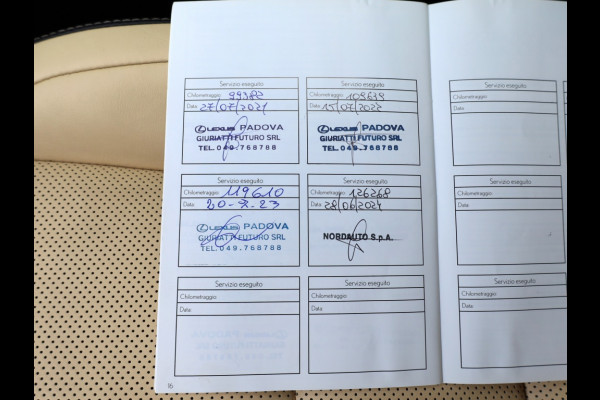 Servizio eseguito
Chilometraggio 99382
Data 27/07/2021
LEXUS PADOVA
GIURIATTI FUTURO SRL
TEL. 049.768788
Servizio eseguito
Chilometraggio 109639
Data 15/07/2022
LEXUS PADOVA
GIURIATTI FUTURO SRL
TEL. 049.768788
Servizio eseguito
Chilometraggio
Data
Servizio eseguito
Chilometraggio 119610
Data 20-7-23
LEXUS PADOVA
GIURIATTI FUTURO SRL
TEL. 049.768788
Servizio eseguito
Chilometraggio 126268
Data 28/06/2024
NORDAUTO S.p.A.
Servizio eseguito
Chilometraggio
Data
Servizio eseguito
Chilometraggio
Data
Servizio eseguito
Chilometraggio
Data
Servizio eseguito
Chilometraggio
Data
16